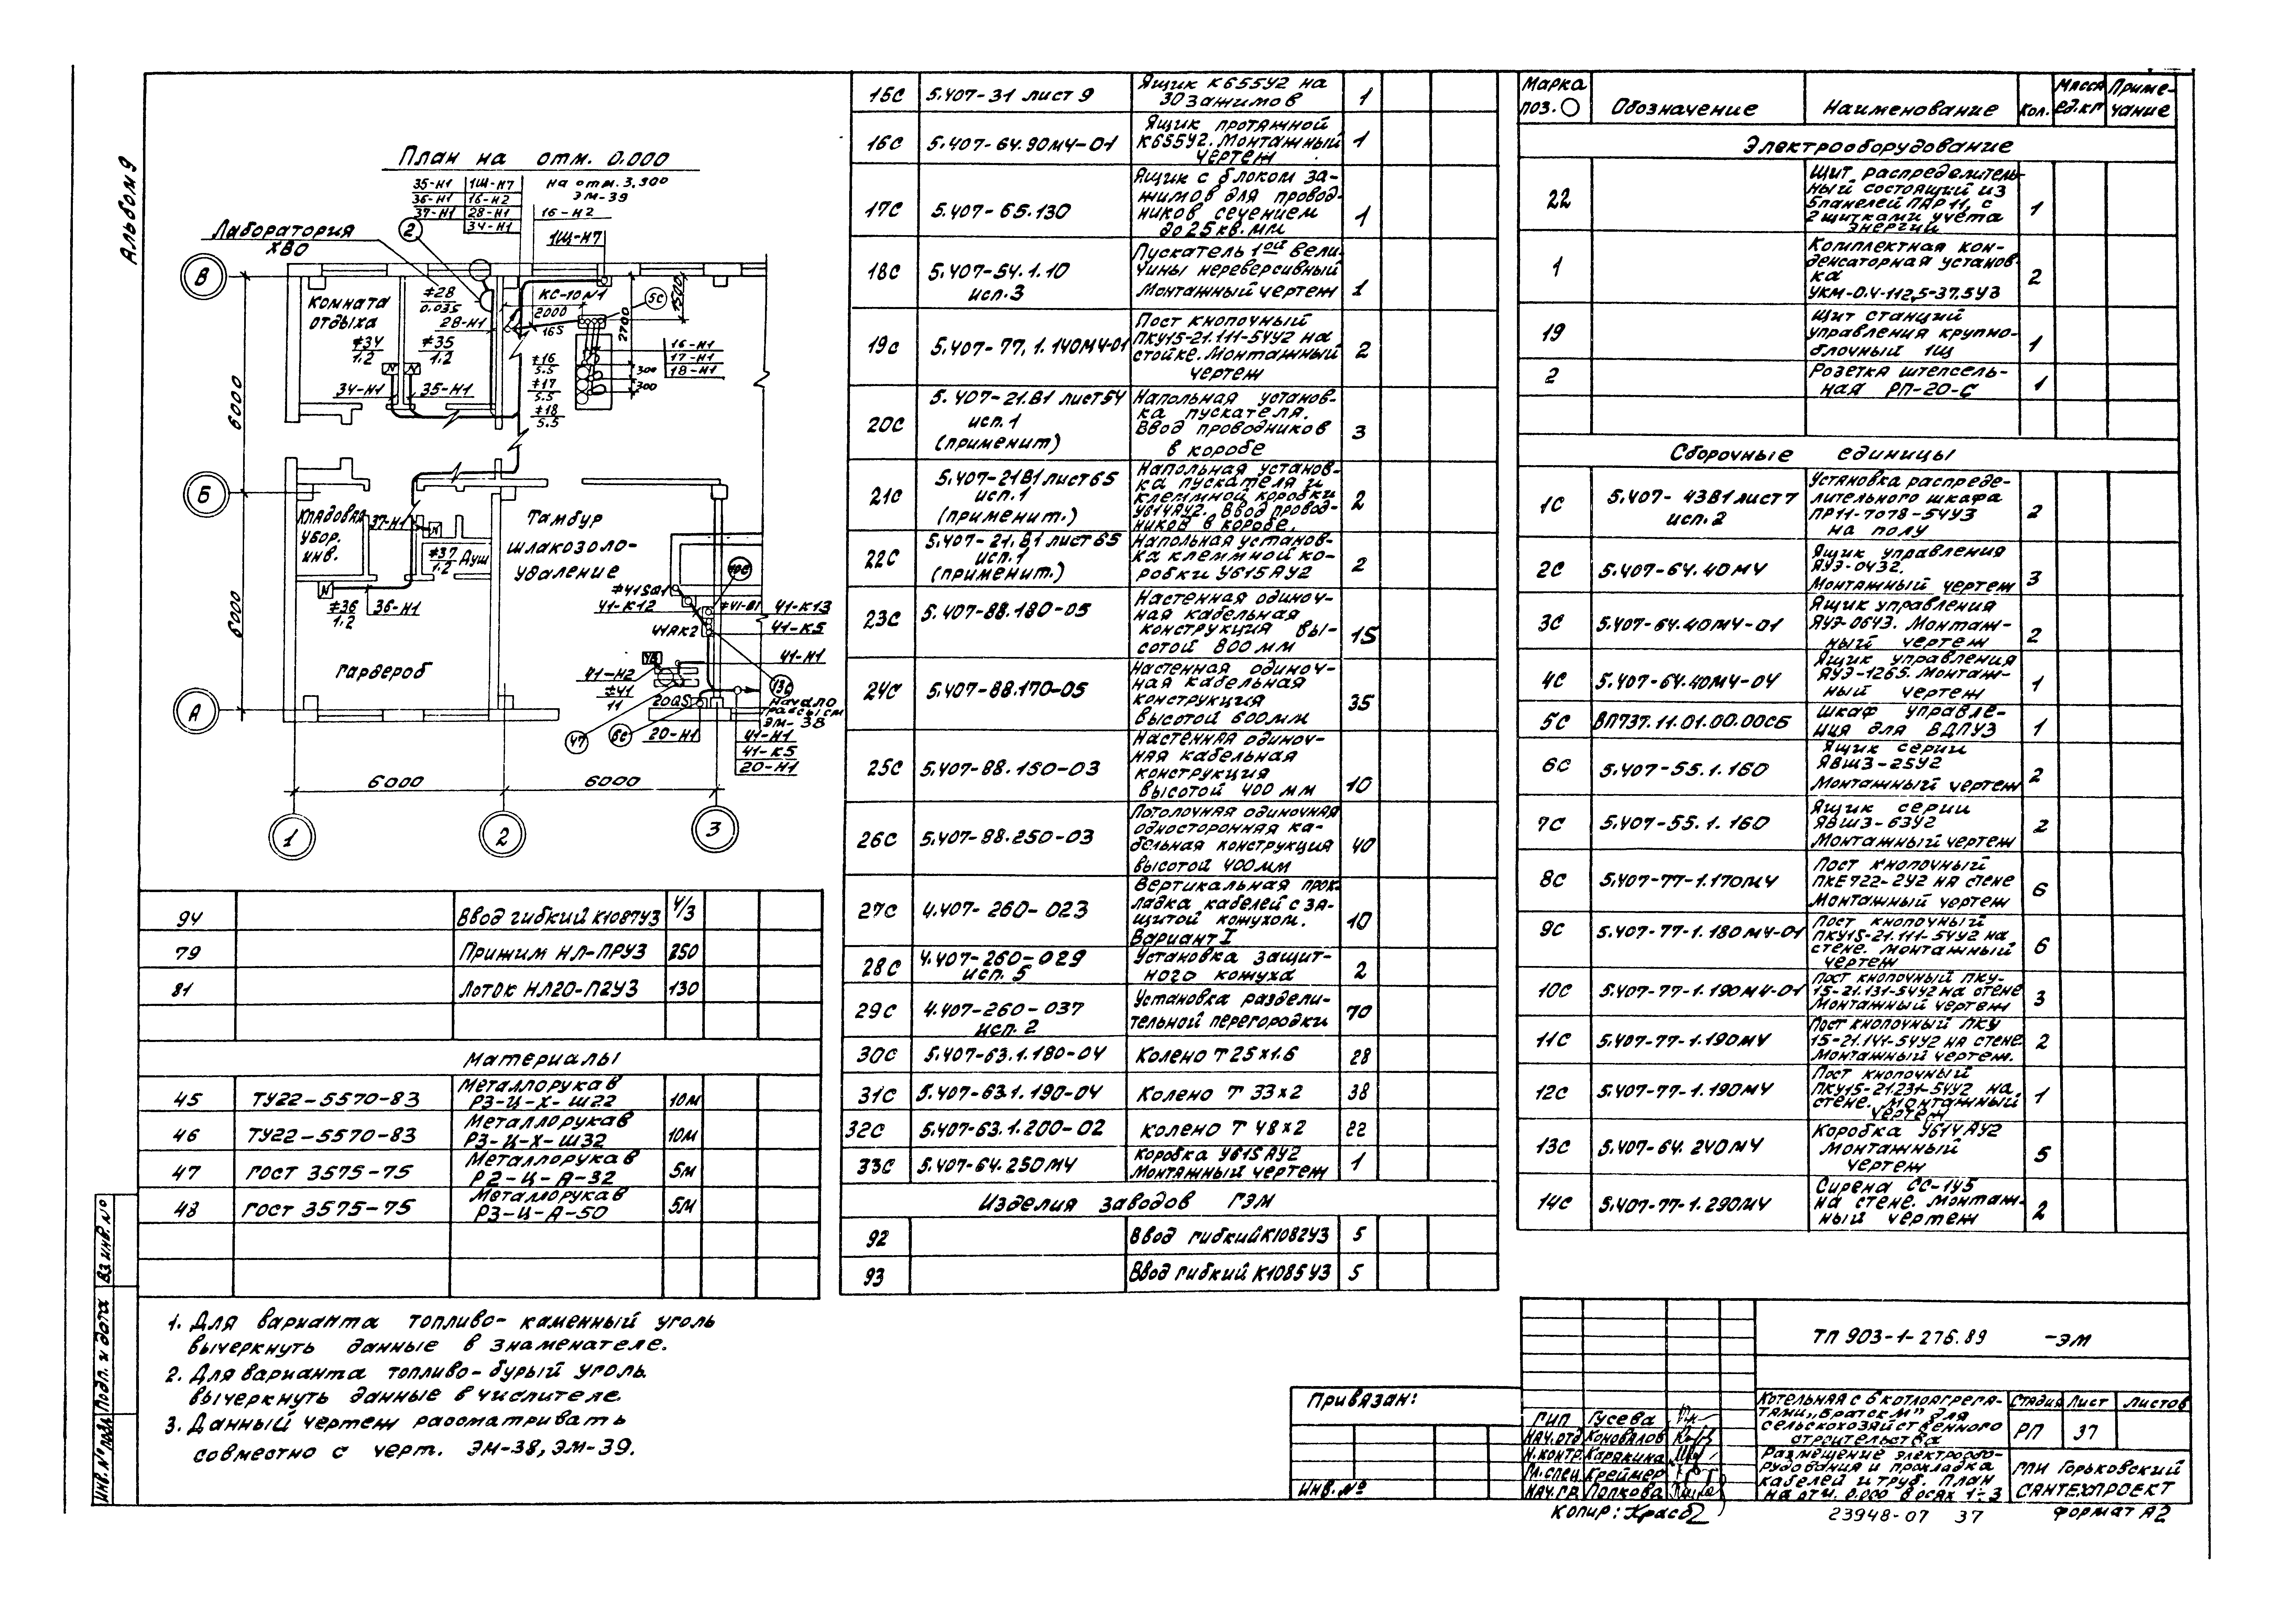 Альбом 9
План на отм. 0.000
35-Н1 1Щ-Н7 на отм. 3.300
36-Н1 16-Н2 ЭМ-39
37-Н1 28-Н1 16-Н2
34-Н1
2
1Щ-Н7
Лаборатория
ХВО
В
Комната
отдыха
≠28
0.035
28-Н1
КС-10 №1
2000
16S
5С
1500
2700
≠34
1.2
≠35
1.2
34-Н1
35-Н1
≠16
5.5
≠17
5.5
≠18
5.5
16-Н1
17-Н1
18-Н1
300
300
6000
Б
Кладовая
убор.
инв.
37-Н1
≠37
1.2
Душ
Тамбур
шлакозоло-
удаление
≠36
1.2
36-Н1
6000
Гардероб
А
10С
≠41SQ1
41-К12
≠41-В1
41-К13
41-К5
41АК2
41-Н1
41-Н2
≠41
11
13С
20QS
Начало
трассы см
ЭМ-38
47
6С
20-Н1
41-Н1
41-К5
20-Н1
6000 6000
1 2 3
94 Ввод гибкий К1087У3 4/3
79 Прижим НЛ-ПРУ3 250
81 Лоток НЛ20-П2У3 130
Материалы
45 ТУ22-5570-83 Металлорукав
РЗ-Ц-Х-Ш22 10м
46 ТУ22-5570-83 Металлорукав
РЗ-Ц-Х-Ш32 10м
47 ГОСТ 3575-75 Металлорукав
Р2-Ц-А-32 5м
48 ГОСТ 3575-75 Металлорукав
РЗ-Ц-А-50 5м
1. Для варианта топливо-каменный уголь
вычеркнуть данные в знаменателе.
2. Для варианта топливо-бурый уголь
вычеркнуть данные в числителе.
3. Данный чертеж рассматривать
совместно с черт. ЭМ-38, ЭМ-39.
Инв.№ подл. Подп. и дата Вз.инв.№
15С 5.407-31 лист 9 Ящик К655У2 на
30 зажимов 1
16С 5.407-64.90МЧ-01 Ящик протяжной
К655У2. Монтажный
чертеж 1
17С 5.407-65.130 Ящик с блоком за-
жимов для провод-
ников сечением
до 25 кв.мм 1
18С 5.407-54.1.10
исп.3 Пускатель 1ой вели-
чины нереверсивный
Монтажный чертеж 1
19С 5.407-77.1.140МЧ-01 Пост кнопочный
ПКУ15-21.111-54У2 на
стойке. Монтажный
чертеж 2
20С 5.407-21.В1 лист 54
исп.1
(применит) Напольная установ-
ка пускателя.
Ввод проводников
в коробе 3
21С 5.407-21В1 лист 65
исп.1
(применит.) Напольная установ-
ка пускателя и
клеммной коробки
У614АУ2. Ввод провод-
ников в коробе. 2
22С 5.407-21.В1 лист 65
исп.1
(применит.) Напольная установ-
ка клеммной ко-
робки У615АУ2 2
23С 5.407-88.180-05 Настенная одиноч-
ная кабельная
конструкция вы-
сотой 800 мм 15
24С 5.407-88.170-05 Настенная одиноч-
ная кабельная
конструкция
высотой 600мм 35
25С 5.407-88.150-03 Настенная одиноч-
ная кабельная
конструкция
высотой 400 мм 10
26С 5.407-88.250-03 Потолочная одиночная
односторонняя ка-
бельная конструкция
высотой 400мм 40
27С 4.407-260-023 Вертикальная прок-
ладка кабелей с за-
щитой кожухом.
Вариант I 10
28С 4.407-260-029
исп. 5 Установка защит-
ного кожуха 2
29С 4.407-260-037
исп. 2 Установка раздели-
тельной перегородки 70
30С 5.407-63.1.180-04 Колено Т 25х1.6 28
31С 5.407-63.1.190-04 Колено Т 33х2 38
32С 5.407-63.1.200-02 колено Т 48х2 22
33С 5.407-64.250МЧ Коробка У615АУ2
Монтажный чертеж 1
Изделия заводов ГЭМ
92 Ввод гибкий К1082У3 5
93 Ввод гибкий К1085У3 5
Марка
поз. Обозначение Наименование Кол. Масса
ед.кг Приме-
чание
Электрооборудование
22 Щит распределитель-
ный состоящий из
5 панелей ПАР11, с
2 щитками учета
энергии 1
1 Комплектная кон-
денсаторная установ-
ка
УКМ-0.4-112,5-37.5У3 2
19 Щит станций
управления крупно-
блочный 1Щ 1
2 Розетка штепсель-
ная РП-20-С 1
Сборочные единицы
1С 5.407-43В1 лист 7
исп. 2 Установка распреде-
лительного шкафа
ПР11-7078-54У3
на полу 2
2С 5.407-64.40МЧ Ящик управления
ЯУЭ-0432.
Монтажный чертеж 3
3С 5.407-64.40МЧ-01 Ящик управления
ЯУЭ-0643. Монтаж-
ный чертеж 2
4С 5.407-64.40МЧ-04 Ящик управления
ЯУЭ-1265. Монтаж-
ный чертеж 1
5С ВП737.11.01.00.00СБ Шкаф управле-
ния для ВДПУ3 1
6С 5.407-55.1.160 Ящик серии
ЯВШ3-25У2
Монтажный чертеж 2
7С 5.407-55.1.160 Ящик серии
ЯВШ3-63У2
Монтажный чертеж 2
8С 5.407-77-1.170МЧ Пост кнопочный
ПКЕ722-2У2 на стене
Монтажный чертеж 6
9С 5.407-77-1.180МЧ-01 Пост кнопочный
ПКУ15-21.111-54У2 на
стене. Монтажный
чертеж 6
10С 5.407-77-1.190МЧ-01 Пост кнопочный ПКУ-
15-21.131-54У2 на стене
Монтажный чертеж 3
11С 5.407-77-1.190МЧ Пост кнопочный ПКУ
15-21.141-54У2 на стене.
Монтажный чертеж. 2
12С 5.407-77-1.190МЧ Пост кнопочный
ПКУ15-21.231-54У2 на
стене. Монтажный
чертеж 1
13С 5.407-64.240МЧ Коробка У614АУ2
Монтажный
чертеж 5
14С 5.407-77-1.290МЧ Сирена СС-1У5
на стене. Монтаж-
ный чертеж 2
Привязан:
Инв.№
ГИП Гусева
Нач.отд Коновалов
Н.контр. Карякина
Гл.спец Креймер
Нач.гр. Попкова
ТП 903-1-276.89 -ЭМ
Котельная с 6 котлоагрега-
тами „Братск М" для
сельскохозяйственного
строительства
Стадия Лист Листов
РП 37
Размещение электрообо-
рудования и прокладка
кабелей и труб. План
на отм. 0.000 в осях 1-3
ГПИ Горьковский
САНТЕХПРОЕКТ
Копир:
23948-07 37
Формат А2